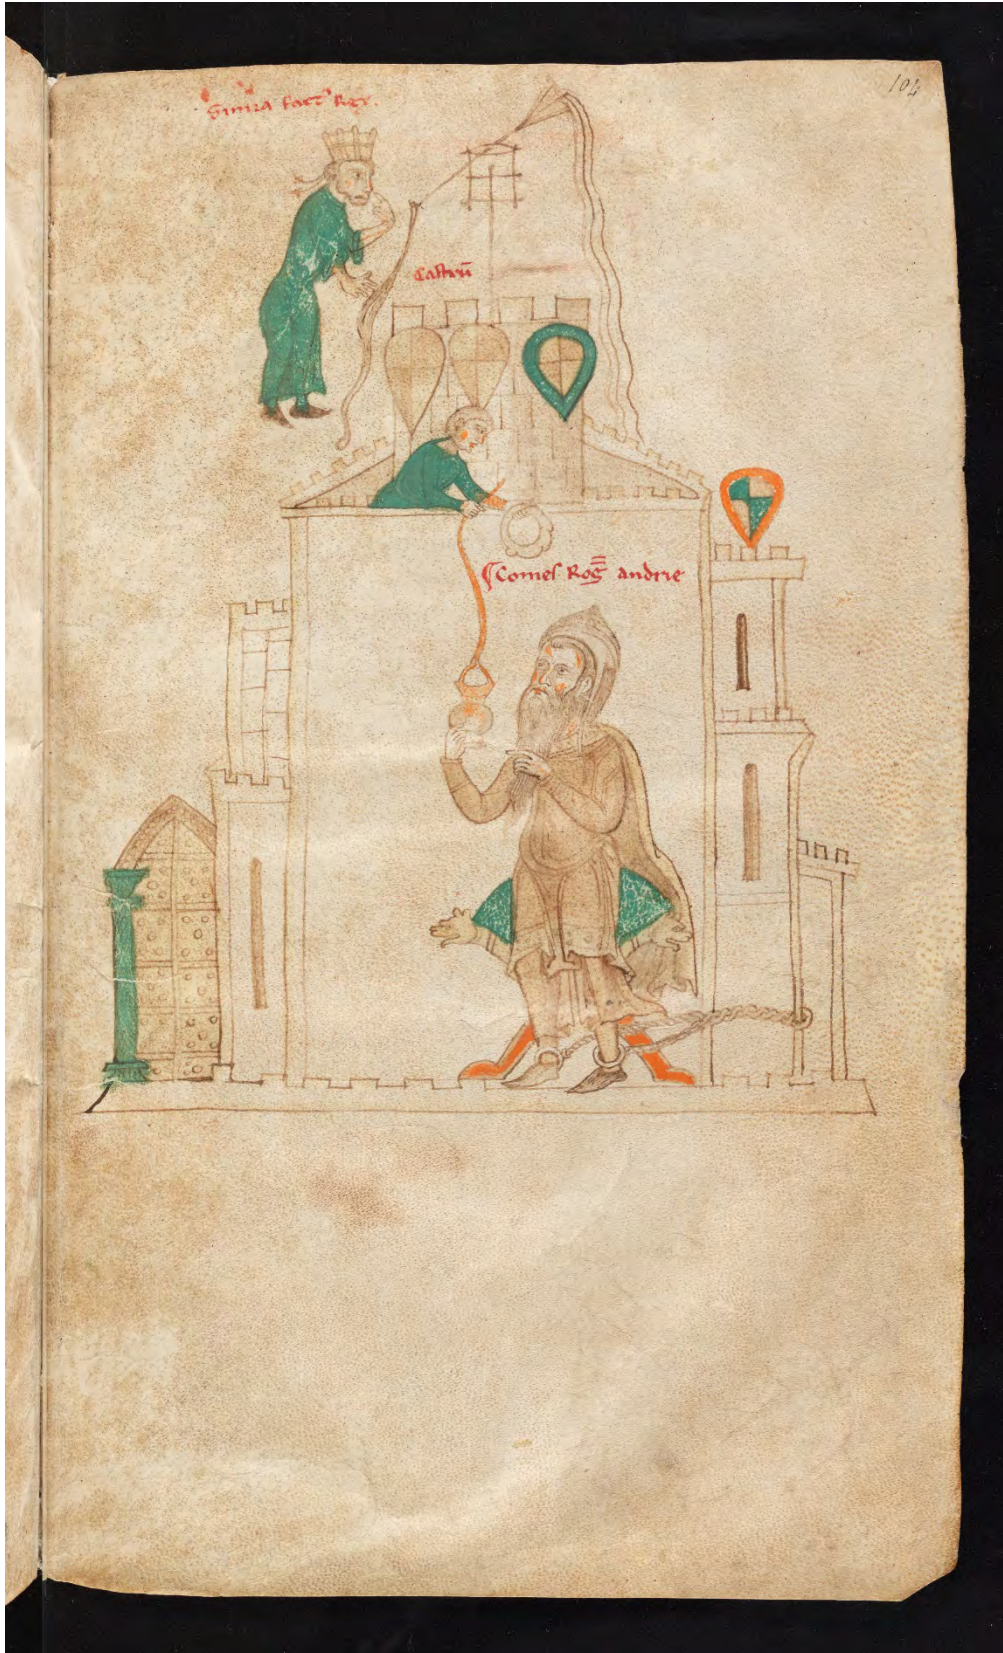 104
Simia fact' Rex.
Castrū
¶ Comes Rog̅ andrie